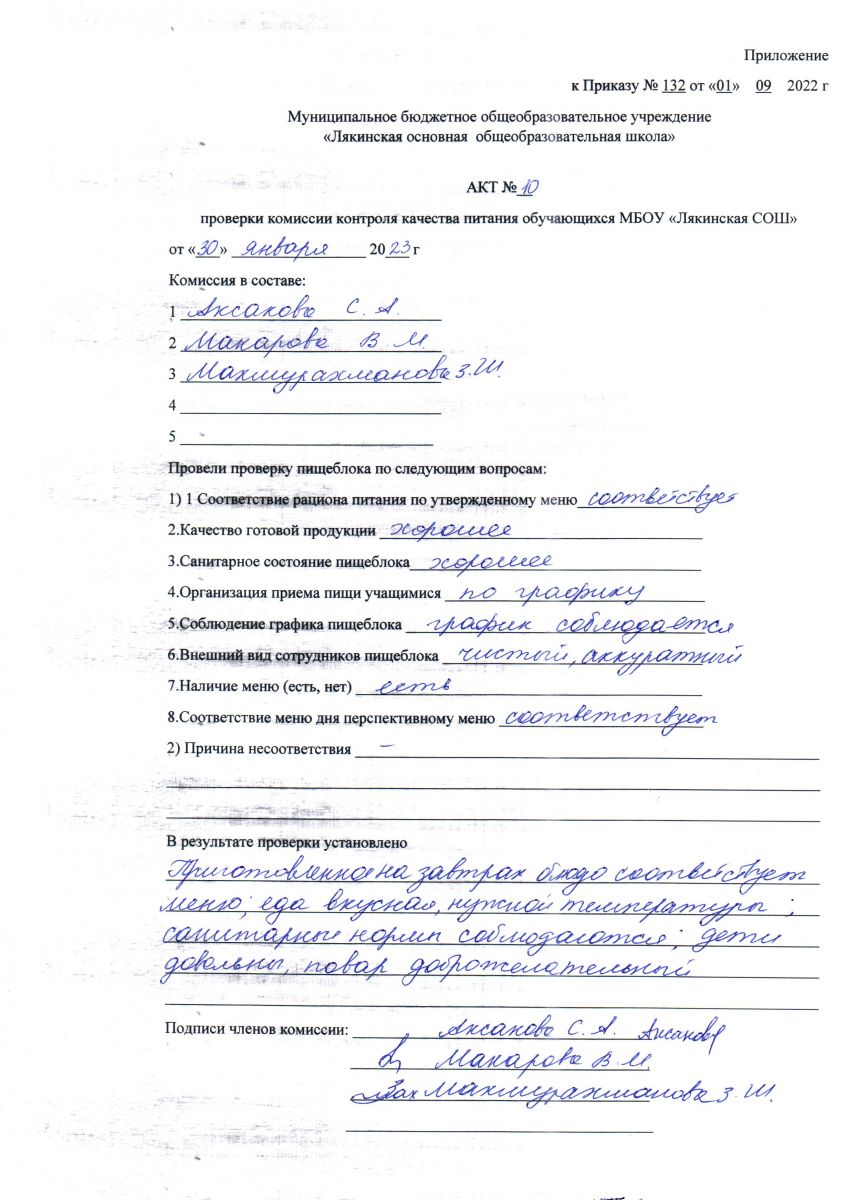 Приложение
к Приказу № 132 от «01» 09 2022 г
Муниципальное бюджетное общеобразовательное учреждение
«Лякинская основная общеобразовательная школа»
АКТ № 10
проверки комиссии контроля качества питания обучающихся МБОУ «Лякинская СОШ»
от «30» января 2023 г
Комиссия в составе:
1 Аксанова С. А.
2 Макарова В. М.
3 Махмурахманова З.Ш.
4
5
Провели проверку пищеблока по следующим вопросам:
1) 1 Соответствие рациона питания по утвержденному меню соответствует
2.Качество готовой продукции хорошее
3.Санитарное состояние пищеблока хорошее
4.Организация приема пищи учащимися по графику
5.Соблюдение графика пищеблока график соблюдается
6.Внешний вид сотрудников пищеблока чистый, аккуратный
7.Наличие меню (есть, нет) есть
8.Соответствие меню дня перспективному меню соответствует
2) Причина несоответствия –
В результате проверки установлено
Приготовленное на завтрак блюдо соответствует
меню; еда вкусная, нужной температуры ;
санитарные нормы соблюдаются; дети
довольны, повар доброжелательный
Подписи членов комиссии: Аксанова С. А. Аксанова
Макарова В. М
Зах Махмурахманова З. Ш.